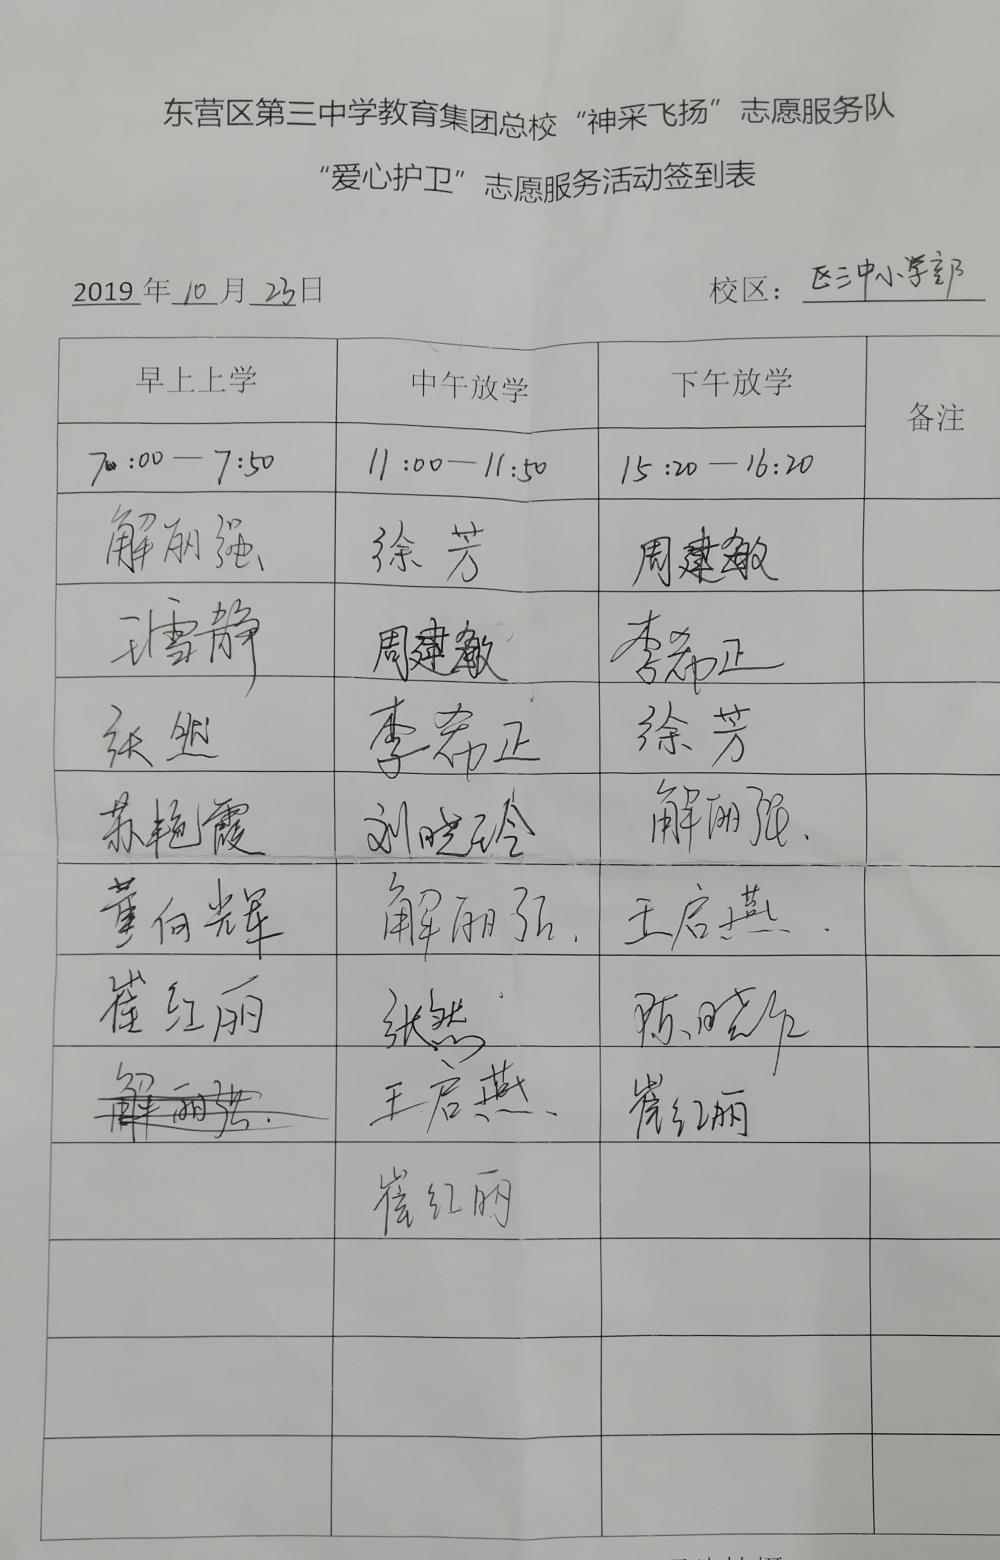 东营区第三中学教育集团总校“神采飞扬”志愿服务队
“爱心护卫”志愿服务活动签到表
2019年10月23日 校区：区三中小学部
早上上学 中午放学 下午放学 备注
7:00—7:50 11:00—11:50 15:20—16:20
解丽强 徐芳 周建敏
王雪静 周建敏 李希正
张然 李希正 徐芳
苏艳霞 刘晓玲 解丽强.
董向光军 解丽强. 王启燕.
崔红丽 张然 陈晓红
解丽强. 王启燕. 崔红丽
崔红丽